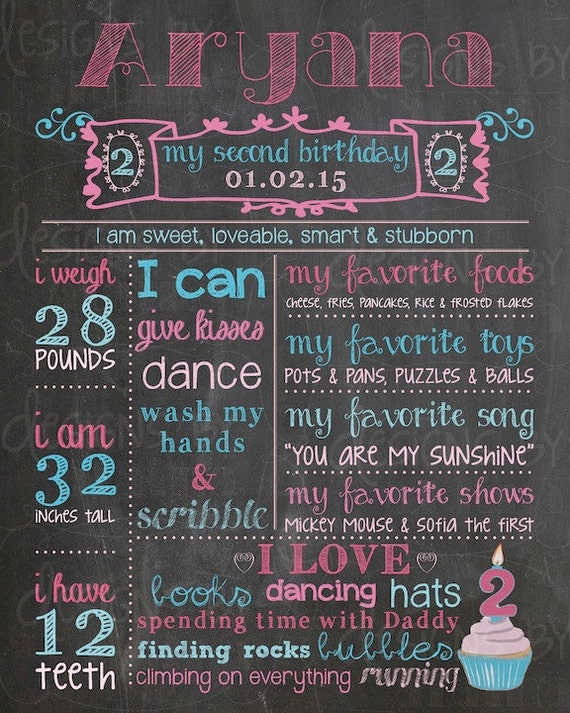 Aryana
2 my second birthday 2
01.02.15
I am sweet, loveable, smart & stubborn
i weigh
28
POUNDS
i am
32
inches tall
i have
12
teeth
I can
give kisses
dance
wash my
hands
&
scribble
my favorite foods
cheese, fries, pancakes, rice & frosted flakes
my favorite toys
Pots & Pans, Puzzles & Balls
my favorite song
"You are my sunshine"
my favorite shows
Mickey Mouse & Sofia the first
I LOVE
books dancing hats
spending time with Daddy
finding rocks bubbles
climbing on everything running
2
designs by